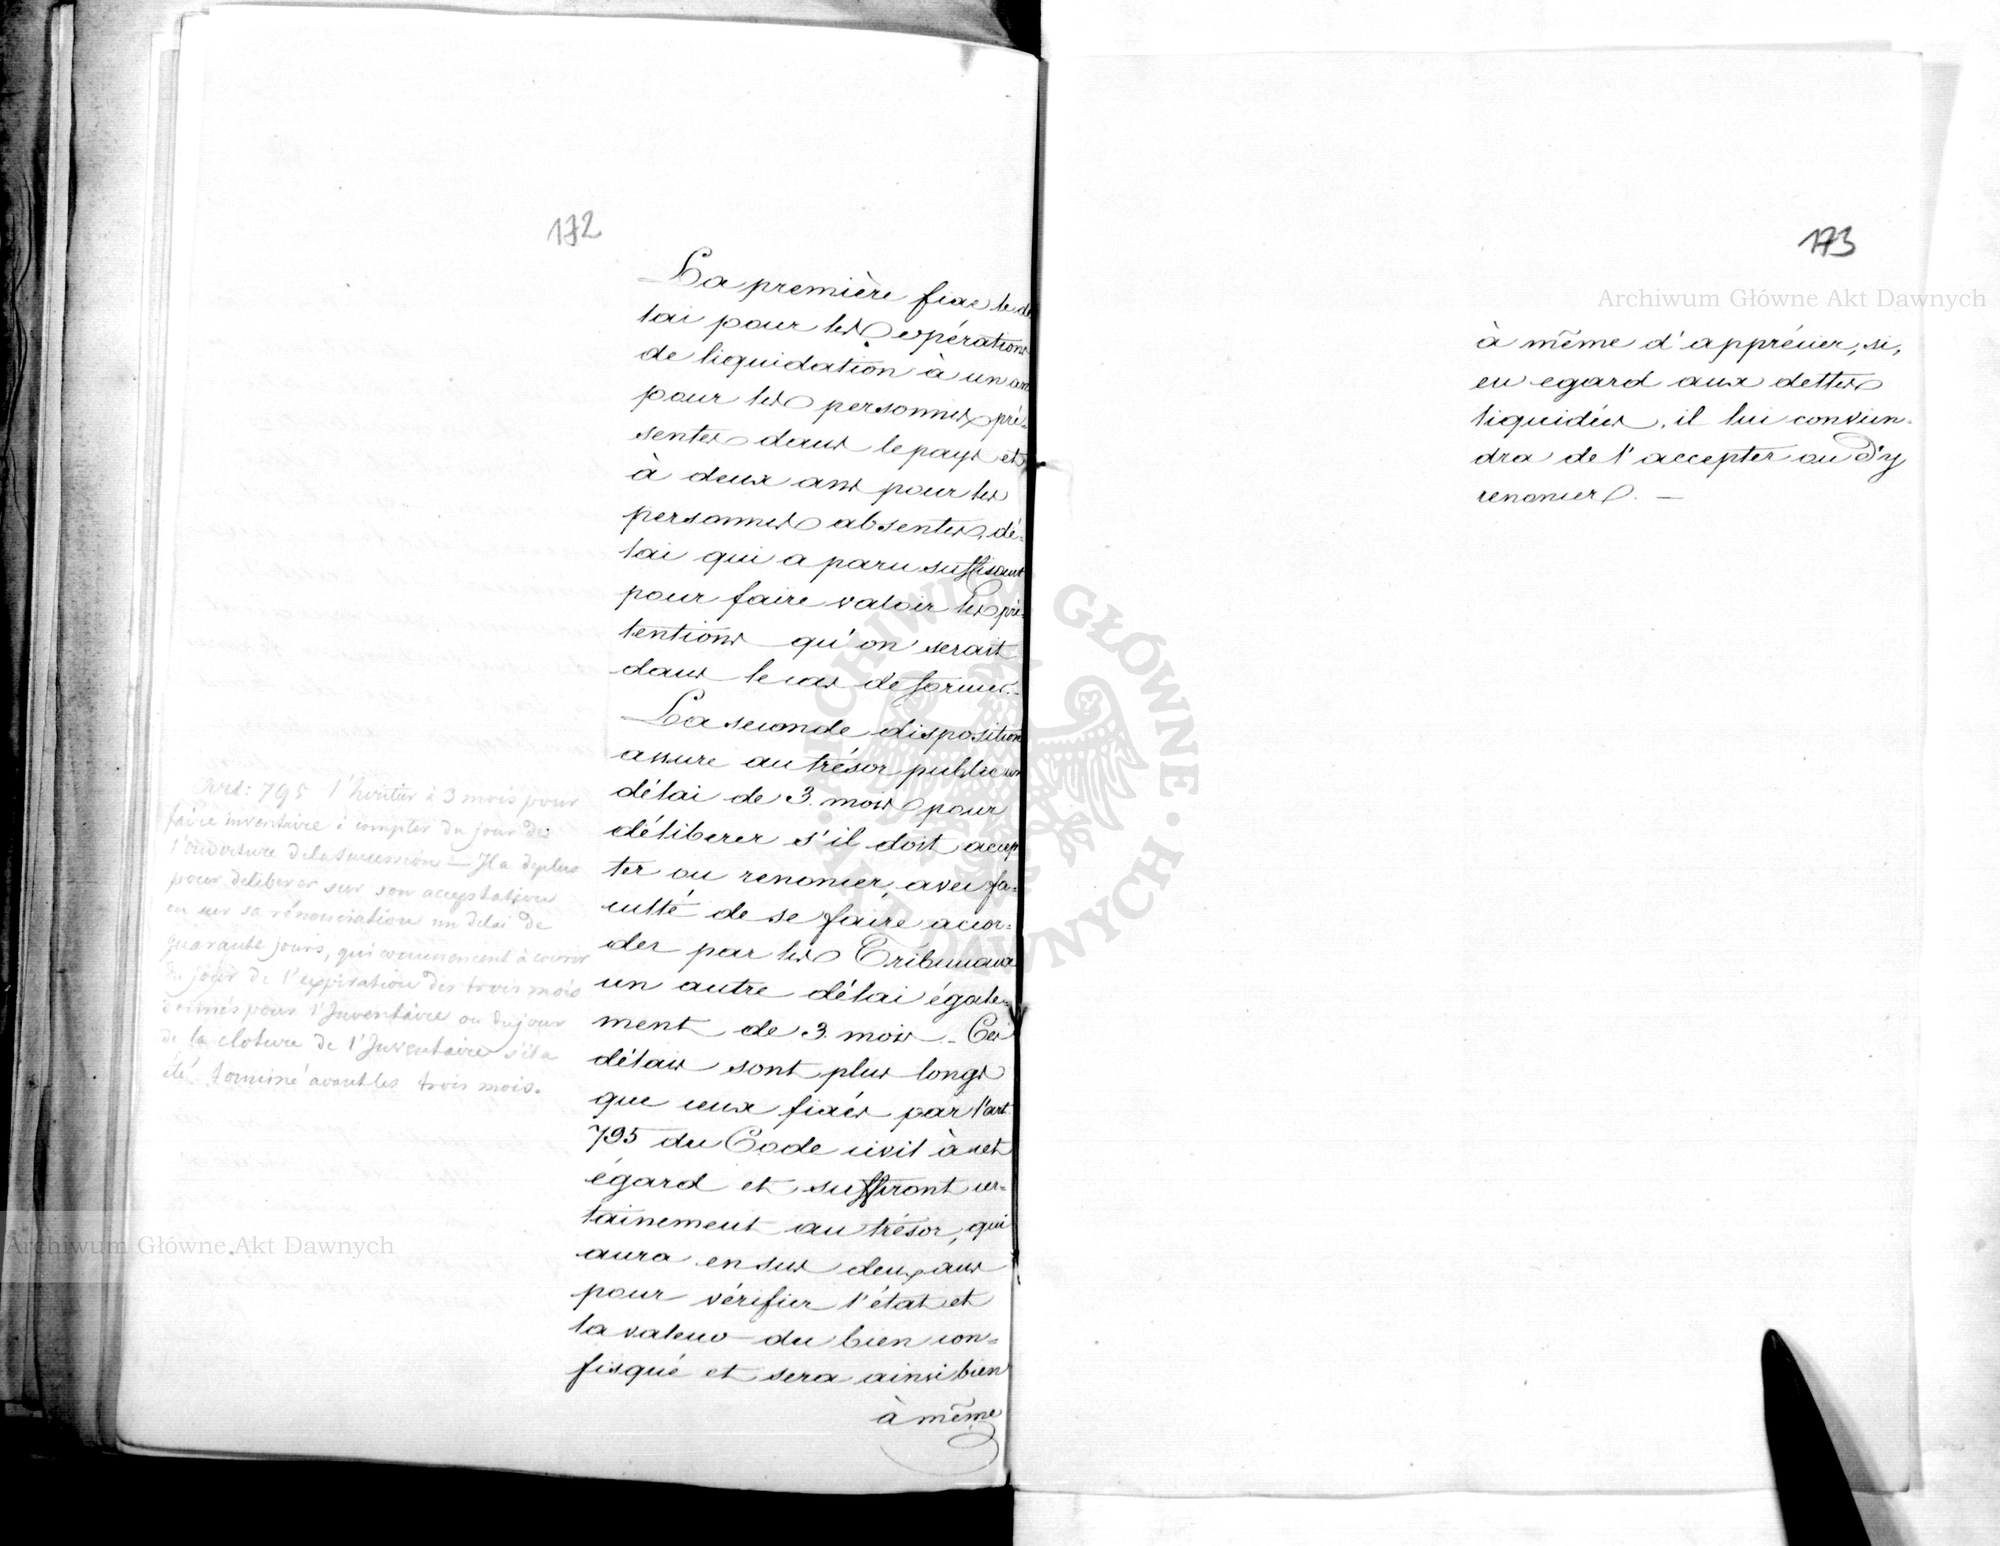 172
La première fixe le dé
lai pour les opérations
de liquidation à un an
pour les personnes pré-
sentes dans le pays et
à deux ans pour les
personnes absentes, dé-
lai qui a paru suffisant
pour faire valoir les pré-
tentions qu'on serait
dans le cas de former.
La seconde disposition
assure au trésor public un
délai de 3. mois pour
déliberer s'il doit accep
ter ou renoncer, avec fa-
culté de se faire accor-
der par les Tribunaux
un autre délai égale-
ment de 3. mois. - Ces
délais sont plus longs
que ceux fixés par l'art
795 du Code civil à cet
égard et suffiront cer-
tainement au trésor, qui
aura en sus deux ans
pour vérifier l'état et
la valeur du bien con-
fisqué et sera ainsi bien
à même
Art: 795 l'heritier à 3 mois pour
faire inventaire à compter du jour de
l'ouverture de la succession — Il a de plus
pour deliberer sur son acceptation
ou sur sa rénonciation un delai de
quarante jours, qui commencent à courir
du jour de l'expiration des trois mois
donnés pour l'Inventaire ou du jour
de la cloture de l'Inventaire s'il a
été terminé avant les trois mois.
173
à même d'apprécier, si,
eu egard aux dettes
liquidées, il lui convien-
dra de l'accepter ou d'y
renoncer. —
Archiwum Główne Akt Dawnych
Archiwum Główne Akt Dawnych
ARCHIWUM GŁÓWNE AKT DAWNYCH